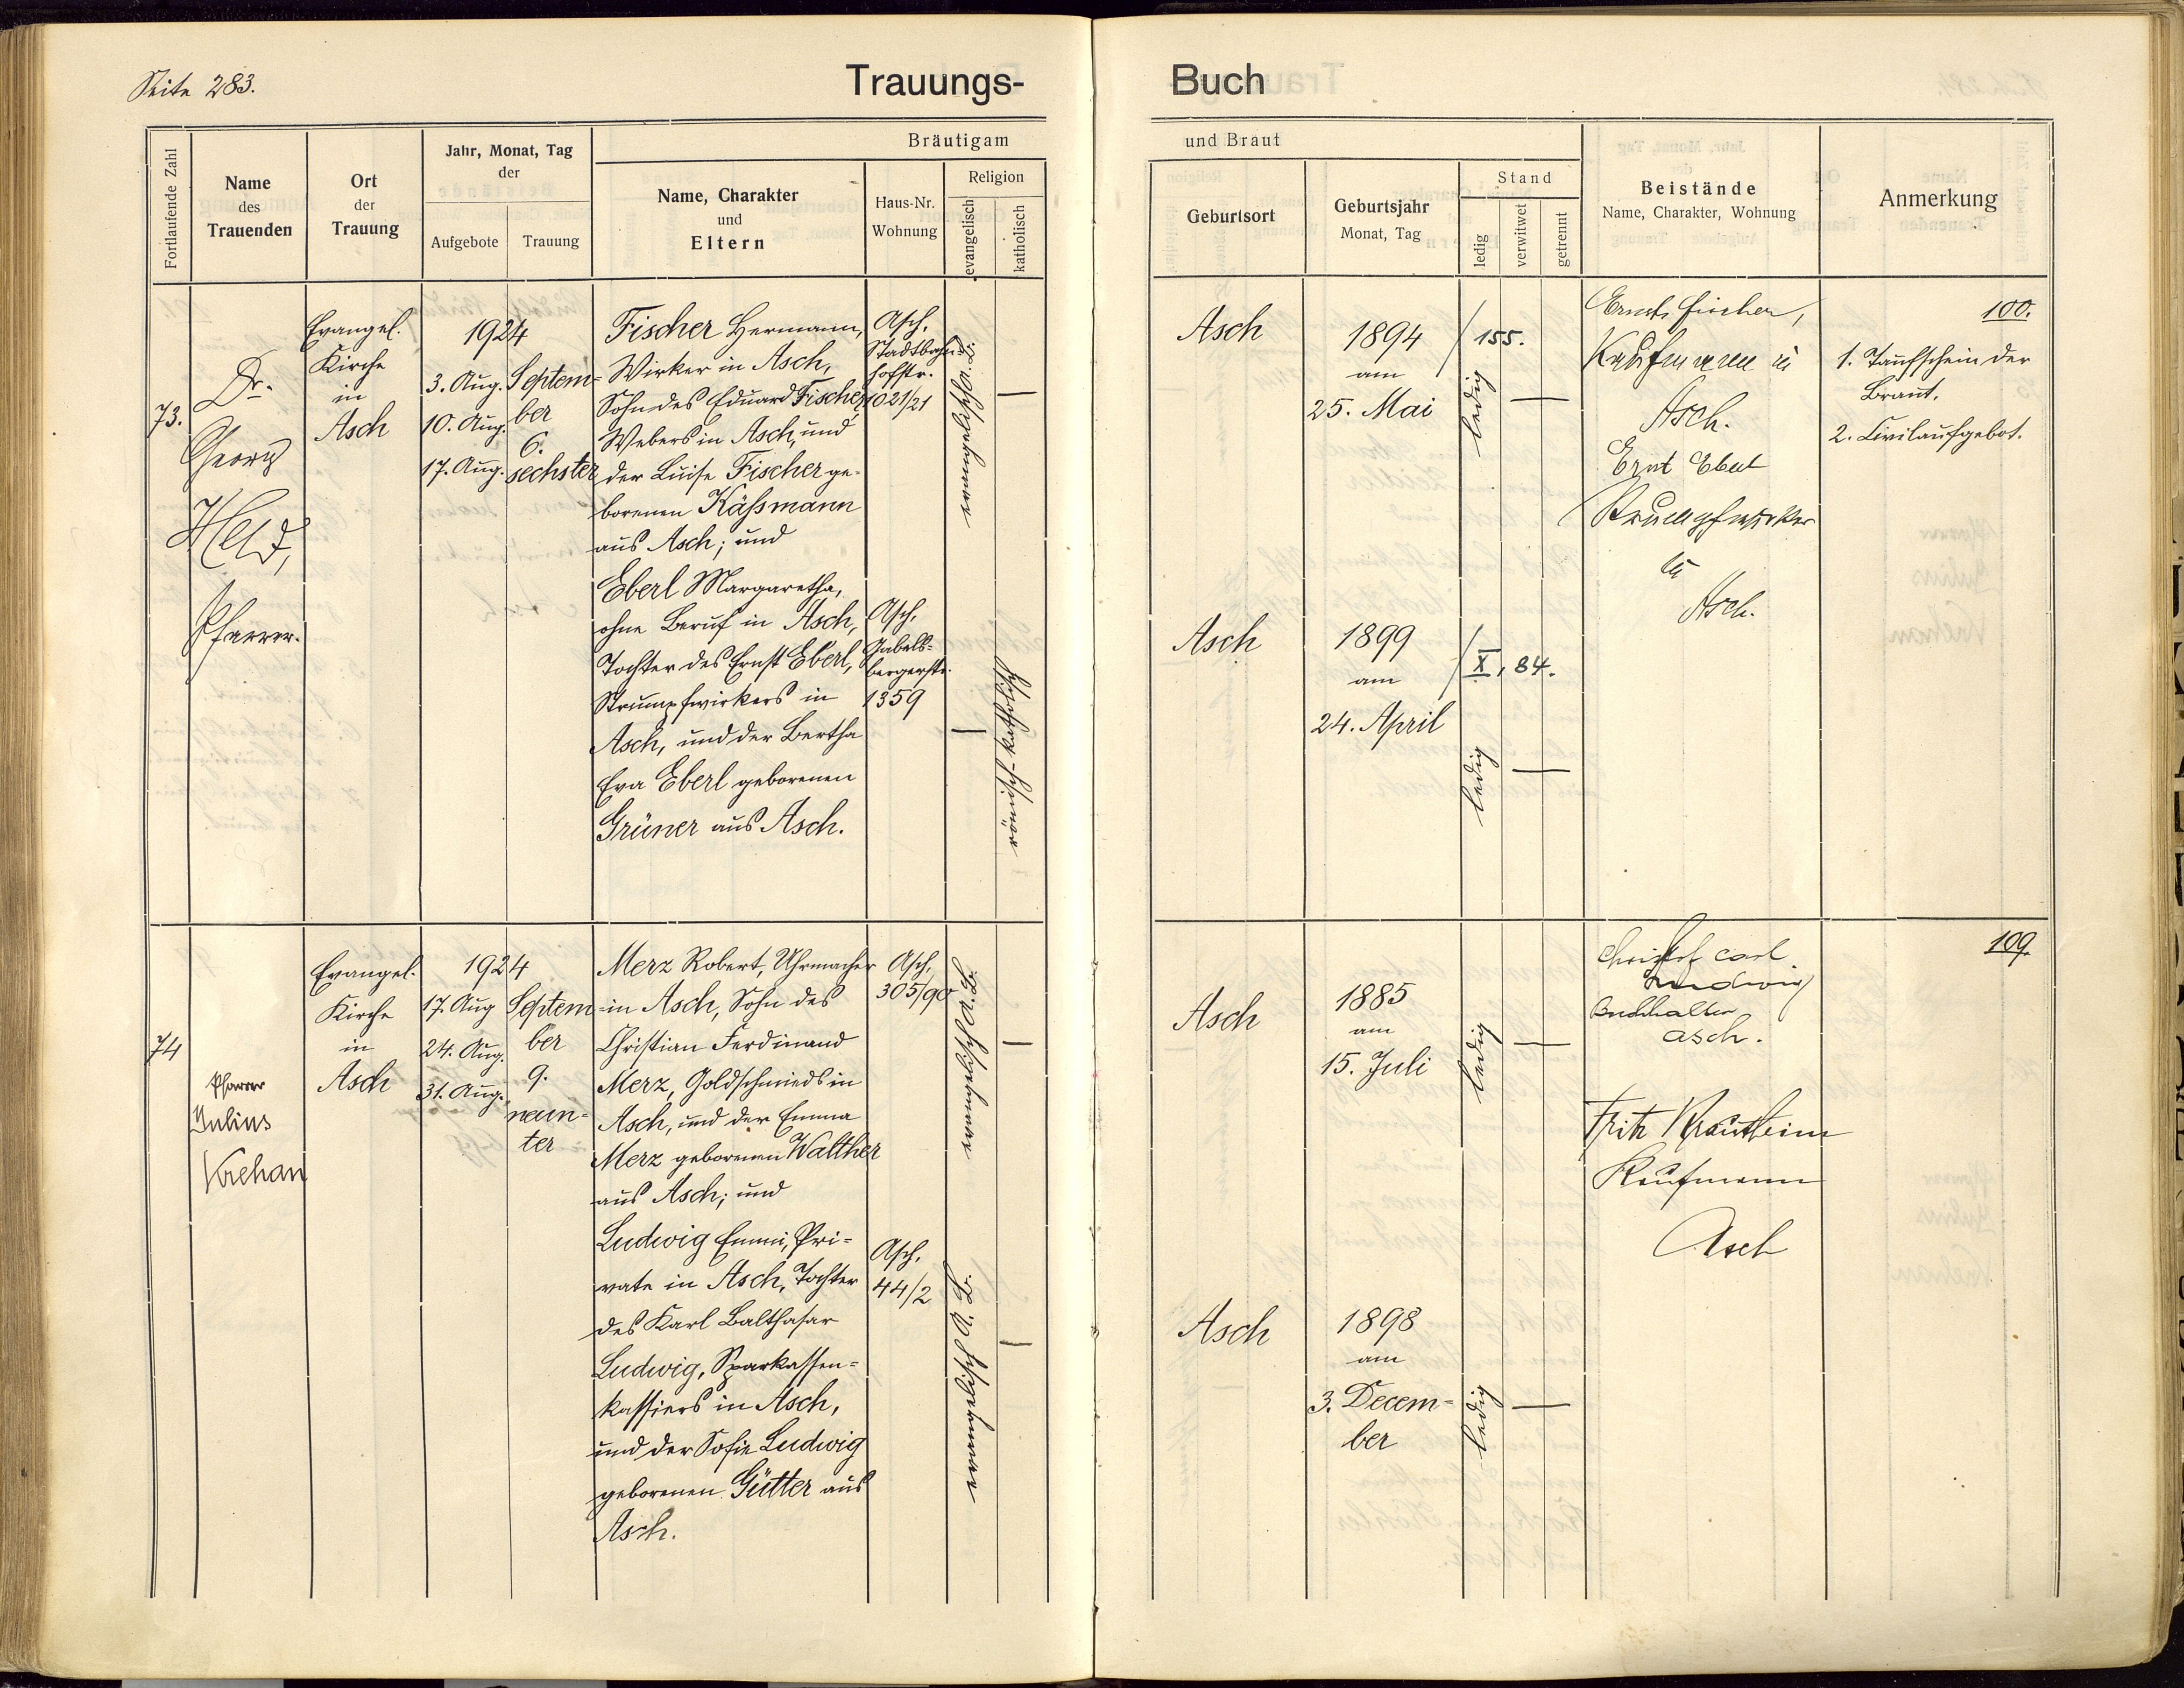 Seite 283.
Trauungs-
Buch
Fortlaufende Zahl
Name
des
Trauenden
Ort
der
Trauung
Jahr, Monat, Tag
der
Aufgebote
Trauung
Bräutigam
Name, Charakter
und
Eltern
Haus-Nr.
Wohnung
Religion
evangelisch
katholisch
und Braut
Geburtsort
Geburtsjahr
Monat, Tag
Stand
ledig
verwitwet
getrennt
Beistände
Name, Charakter, Wohnung
Anmerkung
73.
Dr.
Georg
Held,
Pfarrer.
Evangel.
Kirche
in
Asch
1924
3. Aug.
10. Aug.
17. Aug.
Septem-
ber
6.
sechster
Fischer Hermann,
Wirker in Asch,
Sohn des Eduard Fischer,
Webers in Asch, und
der Luise Fischer ge-
borenen Käßmann
aus Asch; und
Eberl Margaretha,
ohne Beruf in Asch,
Tochter des Ernst Eberl,
Strumpfwirkers in
Asch, und der Bertha
Eva Eberl geborenen
Grüner aus Asch.
Asch,
Stadtbahn-
hofstr.
1021/21
Asch,
Gabels-
bergerstr.
1359
evangelisch A. B.
römisch-katholisch
Asch
1894
am
25. Mai
155.
ledig
Asch
1899
am
24. April
X, 84.
ledig
Ernst Fischer,
Kaufmann in
Asch.
Ernst Eberl
Strumpfwirker
in
Asch.
100.
1. Taufschein der
Braut.
2. Civilaufgebot.
74
Pfarrer
Julius
Krehan
Evangel.
Kirche
in
Asch
1924
17. Aug
24. Aug.
31. Aug.
Septem-
ber
9.
neun-
ter
Merz Robert, Uhrmacher
in Asch, Sohn des
Christian Ferdinand
Merz, Goldschmieds in
Asch, und der Emma
Merz geborenen Walther
aus Asch; und
Ludwig Emmi, Pri-
vate in Asch, Tochter
des Karl Balthasar
Ludwig, Sparkassen-
kassiers in Asch,
und der Sofie Ludwig
geborenen Gütter aus
Asch.
Asch,
305/90
Asch,
44/2
evangelisch A. B.
evangelisch A. B.
Asch
1885
am
15. Juli
ledig
Asch
1898
am
3. Decem-
ber
ledig
Christof Carl
Ludwig
Buchhalter
Asch.
Fritz Krautheim
Kaufmann
Asch
109.